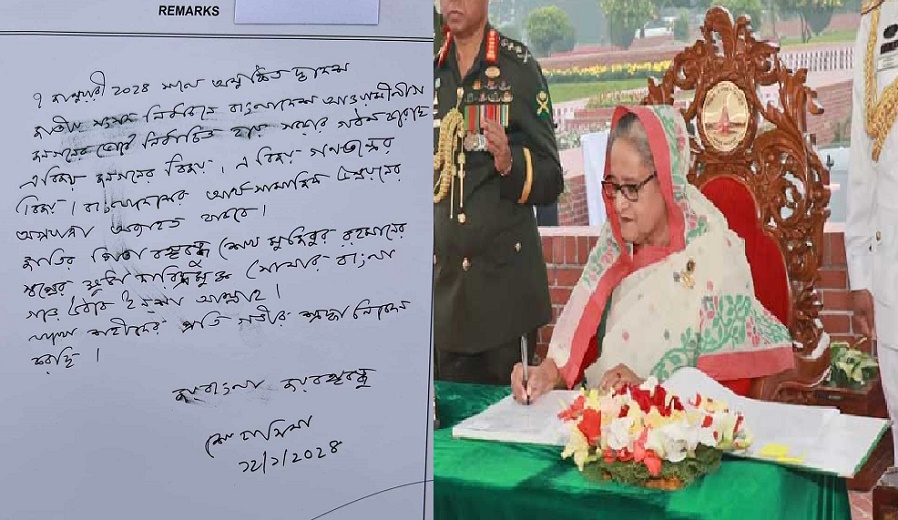 REMARKS
৭ জানুয়ারী ২০২৪ সালে অনুষ্ঠিত দ্বাদশ
জাতীয় সংসদ নির্বাচনে বাংলাদেশ আওয়ামীলীগ
জনগনের ভোটে নির্বাচিত হয়ে সরকার গঠন করেছে
এ বিজয় জনগনের বিজয়। এ বিজয় গণতন্ত্রের
বিজয়। বাংলাদেশের আর্থসামাজিক উন্নয়নের
অগ্রযাত্রা অব্যাহত থাকবে।
জাতির পিতা বঙ্গবন্ধু শেখ মুজিবুর রহমানের
স্বপ্নের ক্ষুধা দারিদ্রমুক্ত সোনার বাংলা
গড়ে তুলব ইনশা আল্লাহ।
শহীদের প্রতি গভীর শ্রদ্ধা নিবেদন
করছি।
জয় বাংলা জয় বঙ্গবন্ধু
শেখ হাসিনা
১২/১/২০২৪